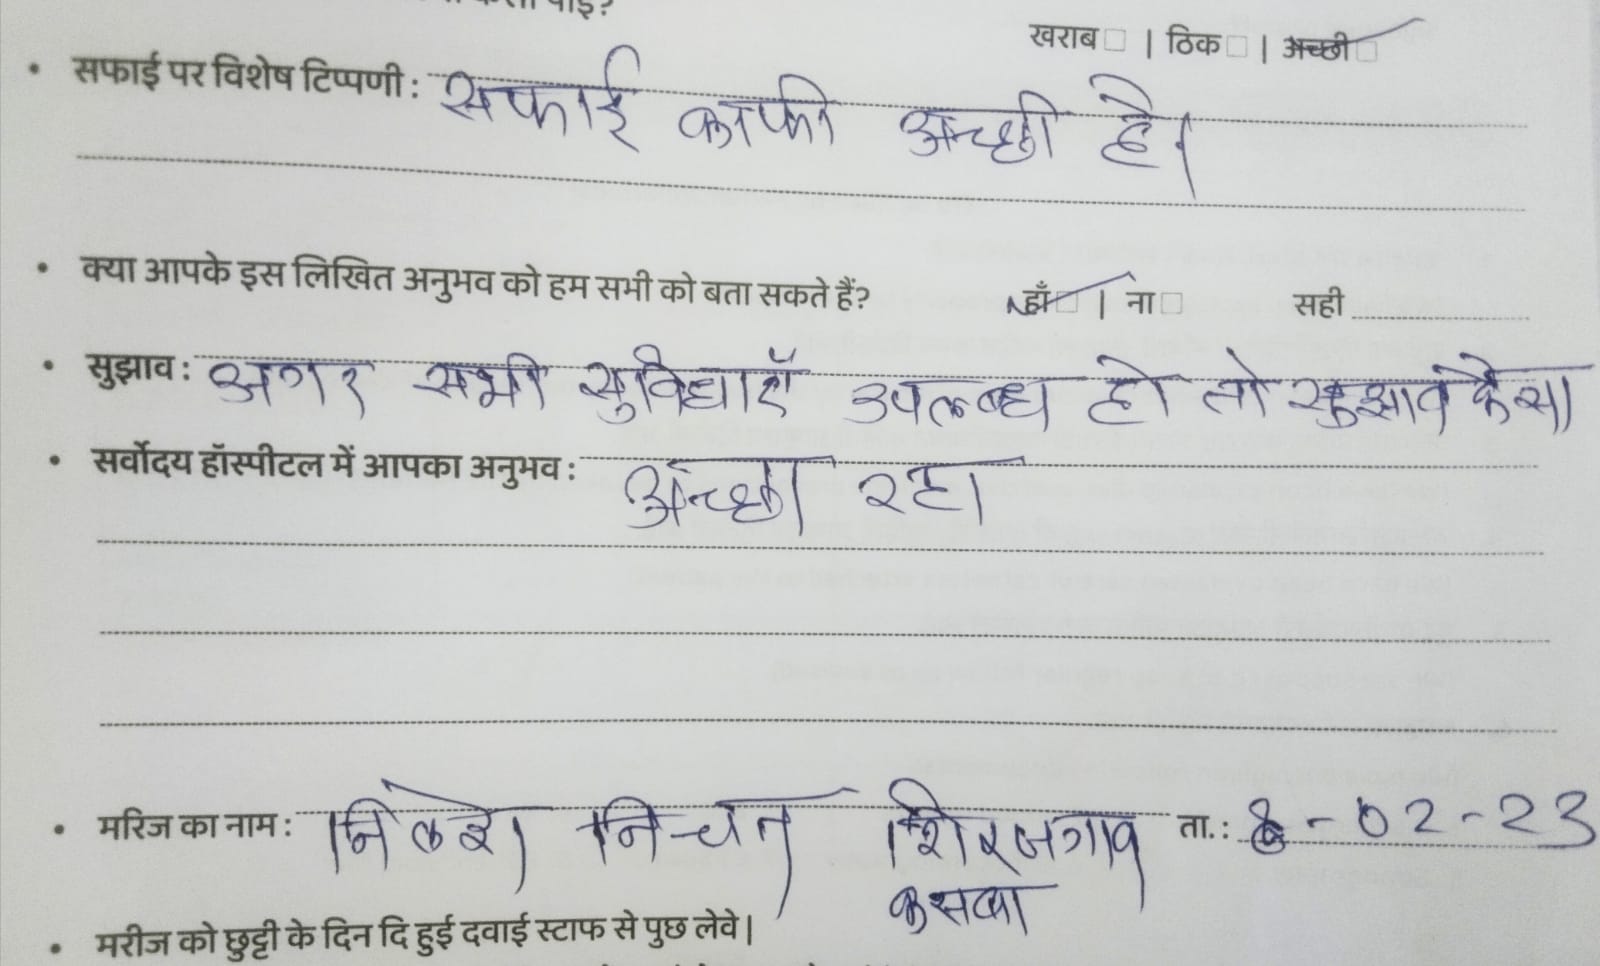 पाई?
खराब □ | ठिक □ | अच्छी □
• सफाई पर विशेष टिप्पणी : सफाई काफी अच्छी है।
• क्या आपके इस लिखित अनुभव को हम सभी को बता सकते हैं? हाँ □ | ना □ सही
• सुझाव : अगर सभी सुविधाएँ उपलब्ध हो तो सुझाव कैसा
• सर्वोदय हॉस्पीटल में आपका अनुभव : अच्छा रहा
• मरिज का नाम : निलेश निचत शिरजगाव ता.: 8-02-23
कसबा
• मरीज को छुट्टी के दिन दि हुई दवाई स्टाफ से पुछ लेवे |